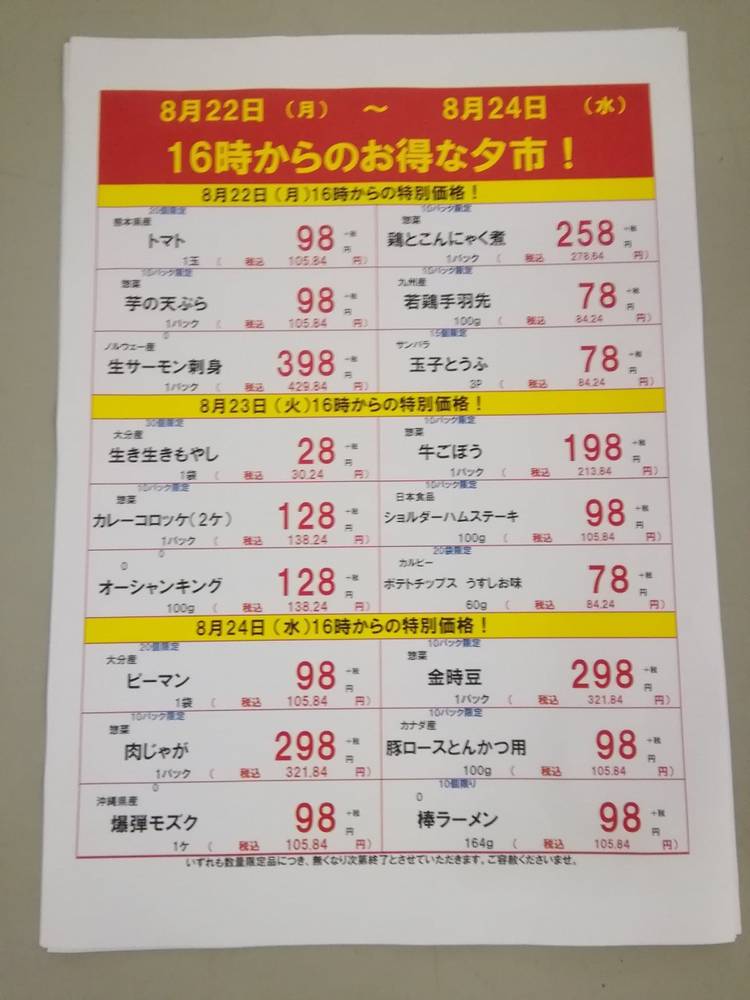 8月22日 （月） ～ 8月24日 （水）
16時からのお得な夕市！
8月22日（月）16時からの特別価格！
20個限定
熊本県産
トマト 98 +税 円
1玉 （ 税込 105.84 円）
10パック限定
惣菜
鶏とこんにゃく煮 258 +税 円
1パック （ 税込 278.64 円）
10パック限定
惣菜
芋の天ぷら 98 +税 円
1パック （ 税込 105.84 円）
10パック限定
九州産
若鶏手羽先 78 +税 円
100g （ 税込 84.24 円）
0
ノルウェー産
生サーモン刺身 398 +税 円
1パック （ 税込 429.84 円）
15個限定
サンバラ
玉子とうふ 78 +税 円
3P （ 税込 84.24 円）
8月23日（火）16時からの特別価格！
30個限定
大分産
生き生きもやし 28 +税 円
1袋 （ 税込 30.24 円）
10パック限定
惣菜
牛ごぼう 198 +税 円
1パック （ 税込 213.84 円）
10パック限定
惣菜
カレーコロッケ（2ケ） 128 +税 円
1パック （ 税込 138.24 円）
10パック限定
日本食品
ショルダーハムステーキ 98 +税 円
100g （ 税込 105.84 円）
0
0
オーシャンキング 128 +税 円
100g （ 税込 138.24 円）
20袋限定
カルビー
ポテトチップス うすしお味 78 +税 円
60g （ 税込 84.24 円）
8月24日（水）16時からの特別価格！
20個限定
大分産
ピーマン 98 +税 円
1袋 （ 税込 105.84 円）
10パック限定
惣菜
金時豆 298 +税 円
1パック （ 税込 321.84 円）
10パック限定
惣菜
肉じゃが 298 +税 円
1パック （ 税込 321.84 円）
10パック限定
カナダ産
豚ロースとんかつ用 98 +税 円
100g （ 税込 105.84 円）
0
沖縄県産
爆弾モズク 98 +税 円
1ケ （ 税込 105.84 円）
10個限り
0
棒ラーメン 98 +税 円
164g （ 税込 105.84 円）
いずれも数量限定品につき、無くなり次第終了とさせていただきます。ご容赦くださいませ。